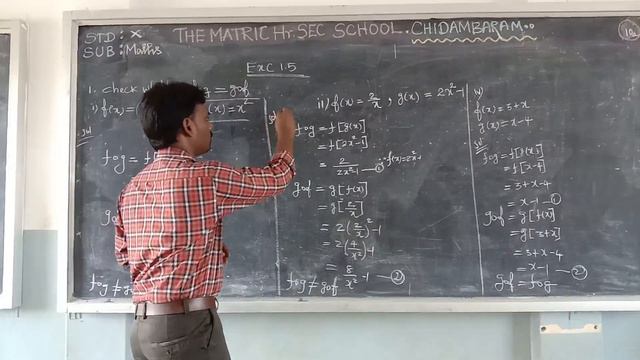 STD: X
THE MATRIC Hr. SEC SCHOOL. CHIDAMBARAM.
SUB: Maths
Exc 1.5
1. check = gof
i) f(x) = (x) = x²
fog = f
fog ≠ g
ii) f(x) = 2/x, g(x) = 2x²-1
fog = f[g(x)]
= f[2x²-1]
= 2/2x²-1 —①
gof = g[f(x)]
= g[2/x]
= 2(2/x)²-1
= 2(4/x²)-1
= 8/x² -1 —②
fog ≠ gof
f(x) = 3+x
g(x) = x-4
fog = f[f(x)]
= f[x-4]
= 3+x-4
= x-1 —①
gof = g[f(x)]
= g[3+x]
= 3+x-4
= x-1 —②
gof = fog